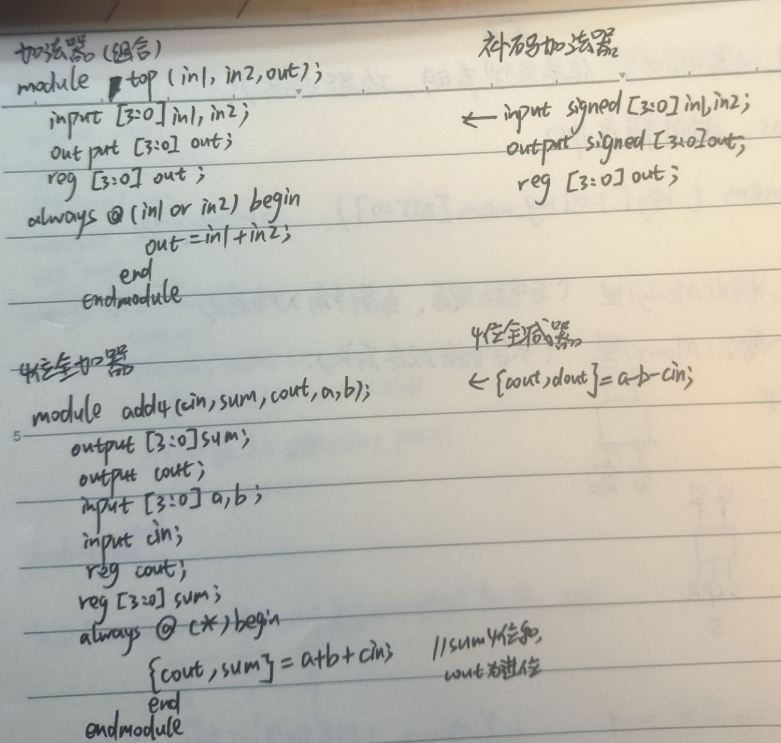 加法器(组合)
module top (in1, in2, out);
input [3:0] in1, in2;
output [3:0] out;
reg [3:0] out;
always @ (in1 or in2) begin
out = in1 + in2;
end
endmodule
补码加法器
← input signed [3:0] in1, in2;
output signed [3:0] out;
reg [3:0] out;
4位全加器
module add4 (cin, sum, cout, a, b);
5
output [3:0] sum;
output cout;
input [3:0] a, b;
input cin;
reg cout;
reg [3:0] sum;
always @ (*) begin
{cout, sum} = a+b+cin; //sum4位和,
cout为进位
end
endmodule
4位全减器
← {cout, dout} = a-b-cin;